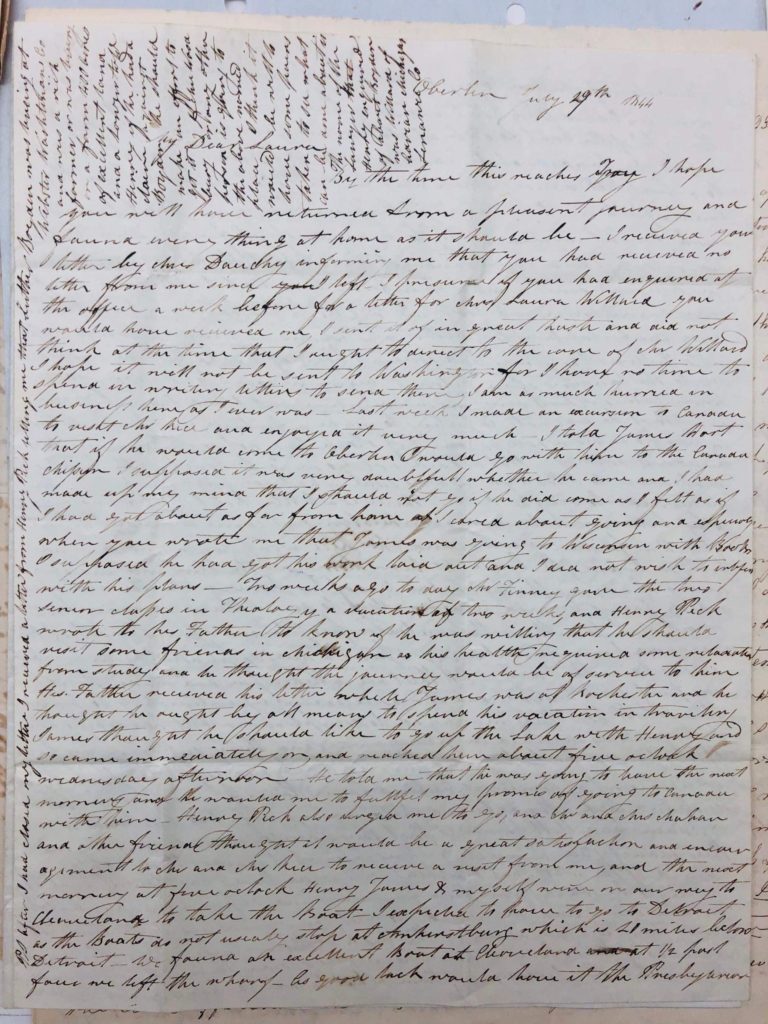 Oberlin July 29th 1844
My Dear Laura
By the time this reaches Troy I hope
you will have returned from a pleasant journey and
found every thing at home as it should be — I received your
letter by Mrs Dauchy informing me that you had received no
letter from me since you left I presume if you had enquired at
the office a week before for a letter for Mrs Laura Willard you
would have received one I sent it of in great haste and did not
think at the time that I ought to direct to the care of Mr Willard
I hope it will not be sent to Washington for I have no time to
spend in writing letters to send there I am as much hurried in
business here as I ever was — Last week I made an excursion to Canada
to visit Mr Rice and enjoyed it very much — I told James
that if he would come to Oberlin I would go with him to the Canada
I supposed it was very doubtfull whether he came and I had
made up my mind that I should not go if he did come as I felt as if
I had got about as far from home as I cared about going and especially
when you wrote me that James was going to Wisconsin with
I supposed he had got his work laid out and I did not wish to
with his plans — Two weeks ago to day Mr Finney gave the two
senior classes in Theology a vacation of two weeks and Henry Peck
wrote to his Father to know if he was willing that he should
visit some friends in Michigan as his health required some relaxation
from study and he thought the journey would be of service to him
His Father received his letter while James was at Rochester and he
thought he ought by all means to spend his vacation in traveling
James thought he should like to go up the Lake with Henry and
so came immediately on and reached here about five oclock
wednesday afternoon — He told me that he was going to leave the next
morning and he wanted me to fulfill my promise of going to Canada
with him — Henry Peck also urged me to go, and Mr and Mrs Mahan
and other friends thought it would be a great satisfaction and encour
agement to Mr and Mrs Rice to receive a visit from me, and the next
morning at five oclock Henry James & myself were on our way to
Cleaveland to take the Boat — I expected to have to go to Detroit
as the Boats do not usually stop at Amherstburg which is 20 miles below
Detroit — We found an excellent Boat at Cleaveland and at ½ past
four we left the wharf — As good luck would have it the Presbyterian
PS after I had closed my letter I received a letter from James Peck telling me that Luther Boyden was living at
Webster Washtenaw Co
and was a rich
farmer or was living
on a farm
of excellent land
and a
Henry if he had a
claim against
Boyden he should
make an effort to
get it
the above named
place I think it
would be well to
have some person
to see what
can be done about it
The name of the
Lawyer that
of Luther Boyden
was Willard of
Michigan